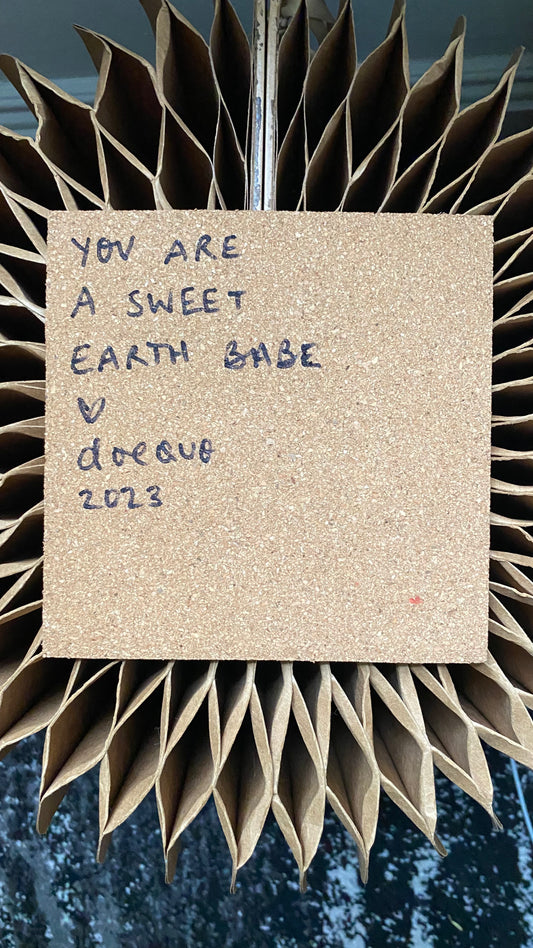 YOU ARE
A SWEET
EARTH BABE
doequo
2023